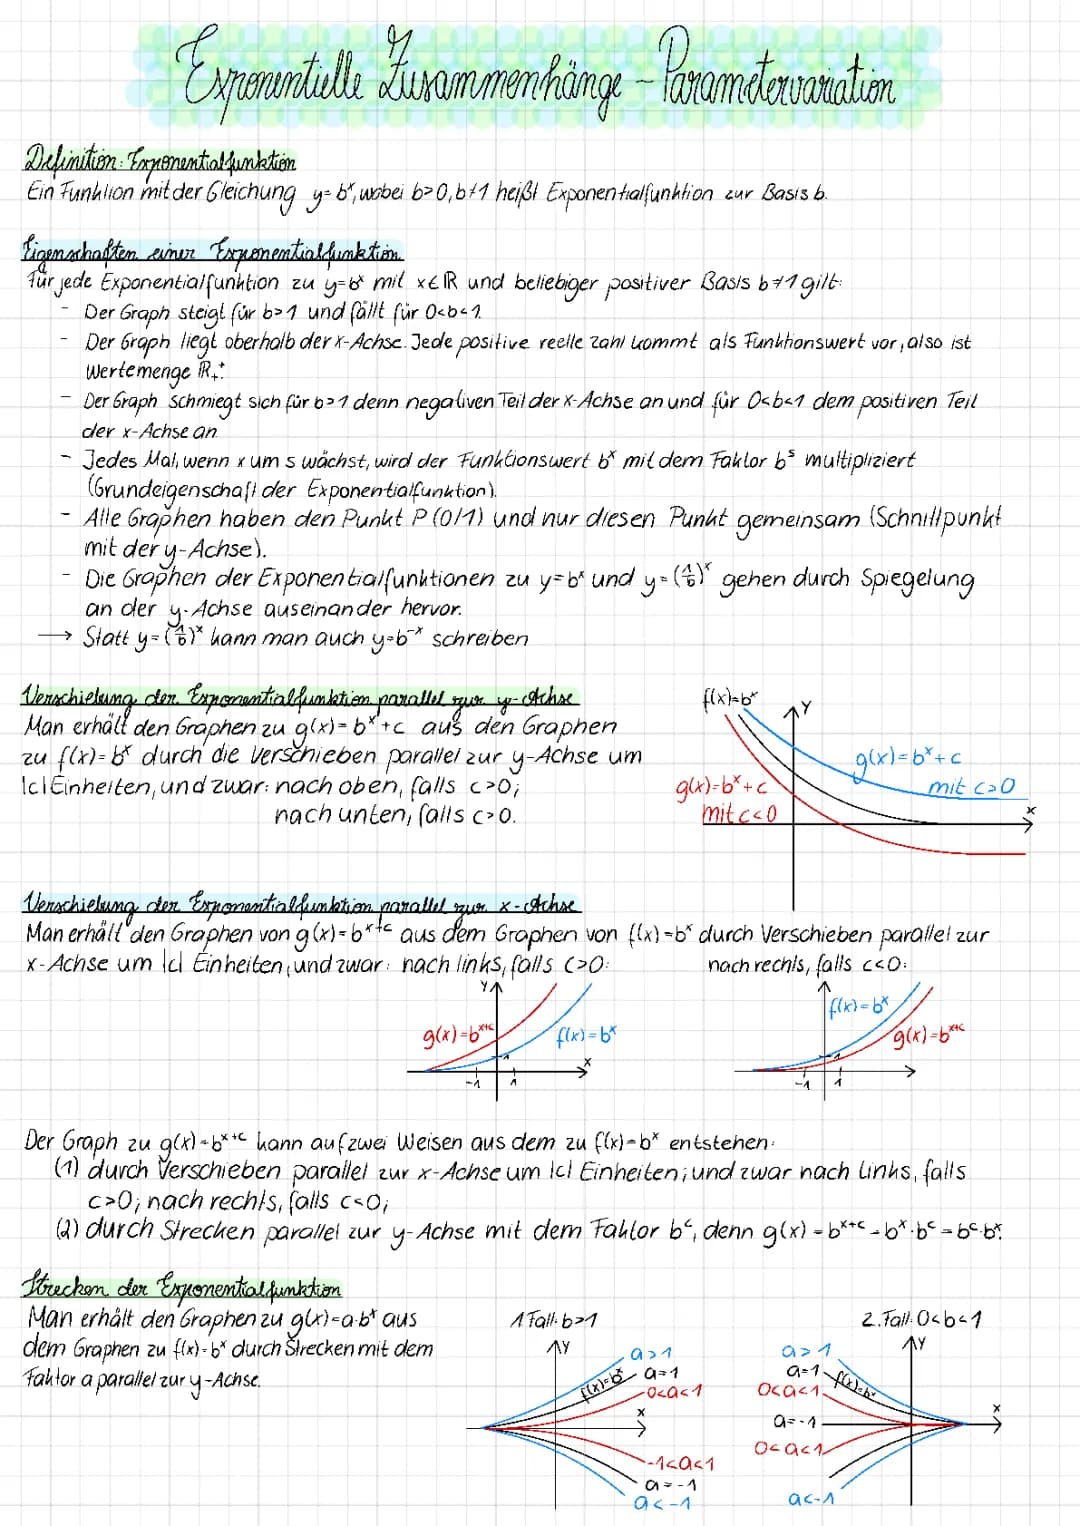 Exponentielle Zusammenhänge - Parametervariation
Definition: Exponentialfunktion
Ein Funktion mit der Gleichung y=bˣ, wobei b>0, b≠1 heißt Exponentialfunktion zur Basis b.
Eigenschaften einer Exponentialfunktion
Für jede Exponentialfunktion zu y=bˣ mit x∈ℝ und beliebiger positiver Basis b≠1 gilt:
- Der Graph steigt für b>1 und fällt für 0<b<1.
- Der Graph liegt oberhalb der x-Achse. Jede positive reelle Zahl kommt als Funktionswert vor, also ist
Wertemenge ℝ₊:
- Der Graph Schmiegt sich für b>1 denn negativen Teil der x-Achse an und für 0<b<1 dem positiven Teil
der x-Achse an
- Jedes Mal, wenn x um s wächst, wird der Funktionswert bˣ mit dem Faktor bˢ multipliziert
(Grundeigenschaft der Exponentialfunktion).
- Alle Graphen haben den Punkt P(0/1) und nur diesen Punkt gemeinsam (Schnittpunkt
mit der y-Achse).
- Die Graphen der Exponentialfunktionen zu y=bˣ und y=(1/b)ˣ gehen durch Spiegelung
an der y-Achse auseinander hervor.
→ Statt y=(1/b)ˣ kann man auch y=b⁻ˣ schreiben
Verschiebung der Exponentialfunktion parallel zur y-Achse
Man erhält den Graphen zu g(x)=bˣ+c aus den Graphen
zu f(x)=bˣ durch die Verschieben parallel zur y-Achse um
|c| Einheiten, und zwar: nach oben, falls c>0;
nach unten, falls c>0.
f(x)=bˣ
y
g(x)=bˣ+c
mit c>0
g(x)=bˣ+c
mit c<0
x
Verschiebung der Exponentialfunktion parallel zur x-Achse
Man erhält den Graphen von g(x)=bˣ⁺ᶜ aus dem Graphen von f(x)=bˣ durch Verschieben parallel zur
x-Achse um |c| Einheiten, und zwar: nach links, falls c>0: nach rechts, falls c<0:
y
g(x)=bˣ⁺ᶜ
f(x)=bˣ
x
1
-1 1
f(x)=bˣ
g(x)=bˣ⁺ᶜ
1
-1 1
Der Graph zu g(x)=bˣ⁺ᶜ kann auf zwei Weisen aus dem zu f(x)=bˣ entstehen:
(1) durch Verschieben parallel zur x-Achse um |c| Einheiten; und zwar nach links, falls
c>0; nach rechts, falls c<0;
(2) durch Strecken parallel zur y-Achse mit dem Faktor bᶜ, denn g(x)=bˣ⁺ᶜ=bˣ·bᶜ=bᶜ·bˣ.
Strecken der Exponentialfunktion
Man erhält den Graphen zu g(x)=a·bˣ aus
dem Graphen zu f(x)=bˣ durch Strecken mit dem
Faktor a parallel zur y-Achse.
1 Fall: b>1
y
a>1
f(x)=bˣ
a=1
0<a<1
x
-1<a<1
a=-1
a<-1
2. Fall: 0<b<1
y
a>1
a=1
f(x)=bˣ
0<a<1
x
a=-1
0<a<1
a<-1